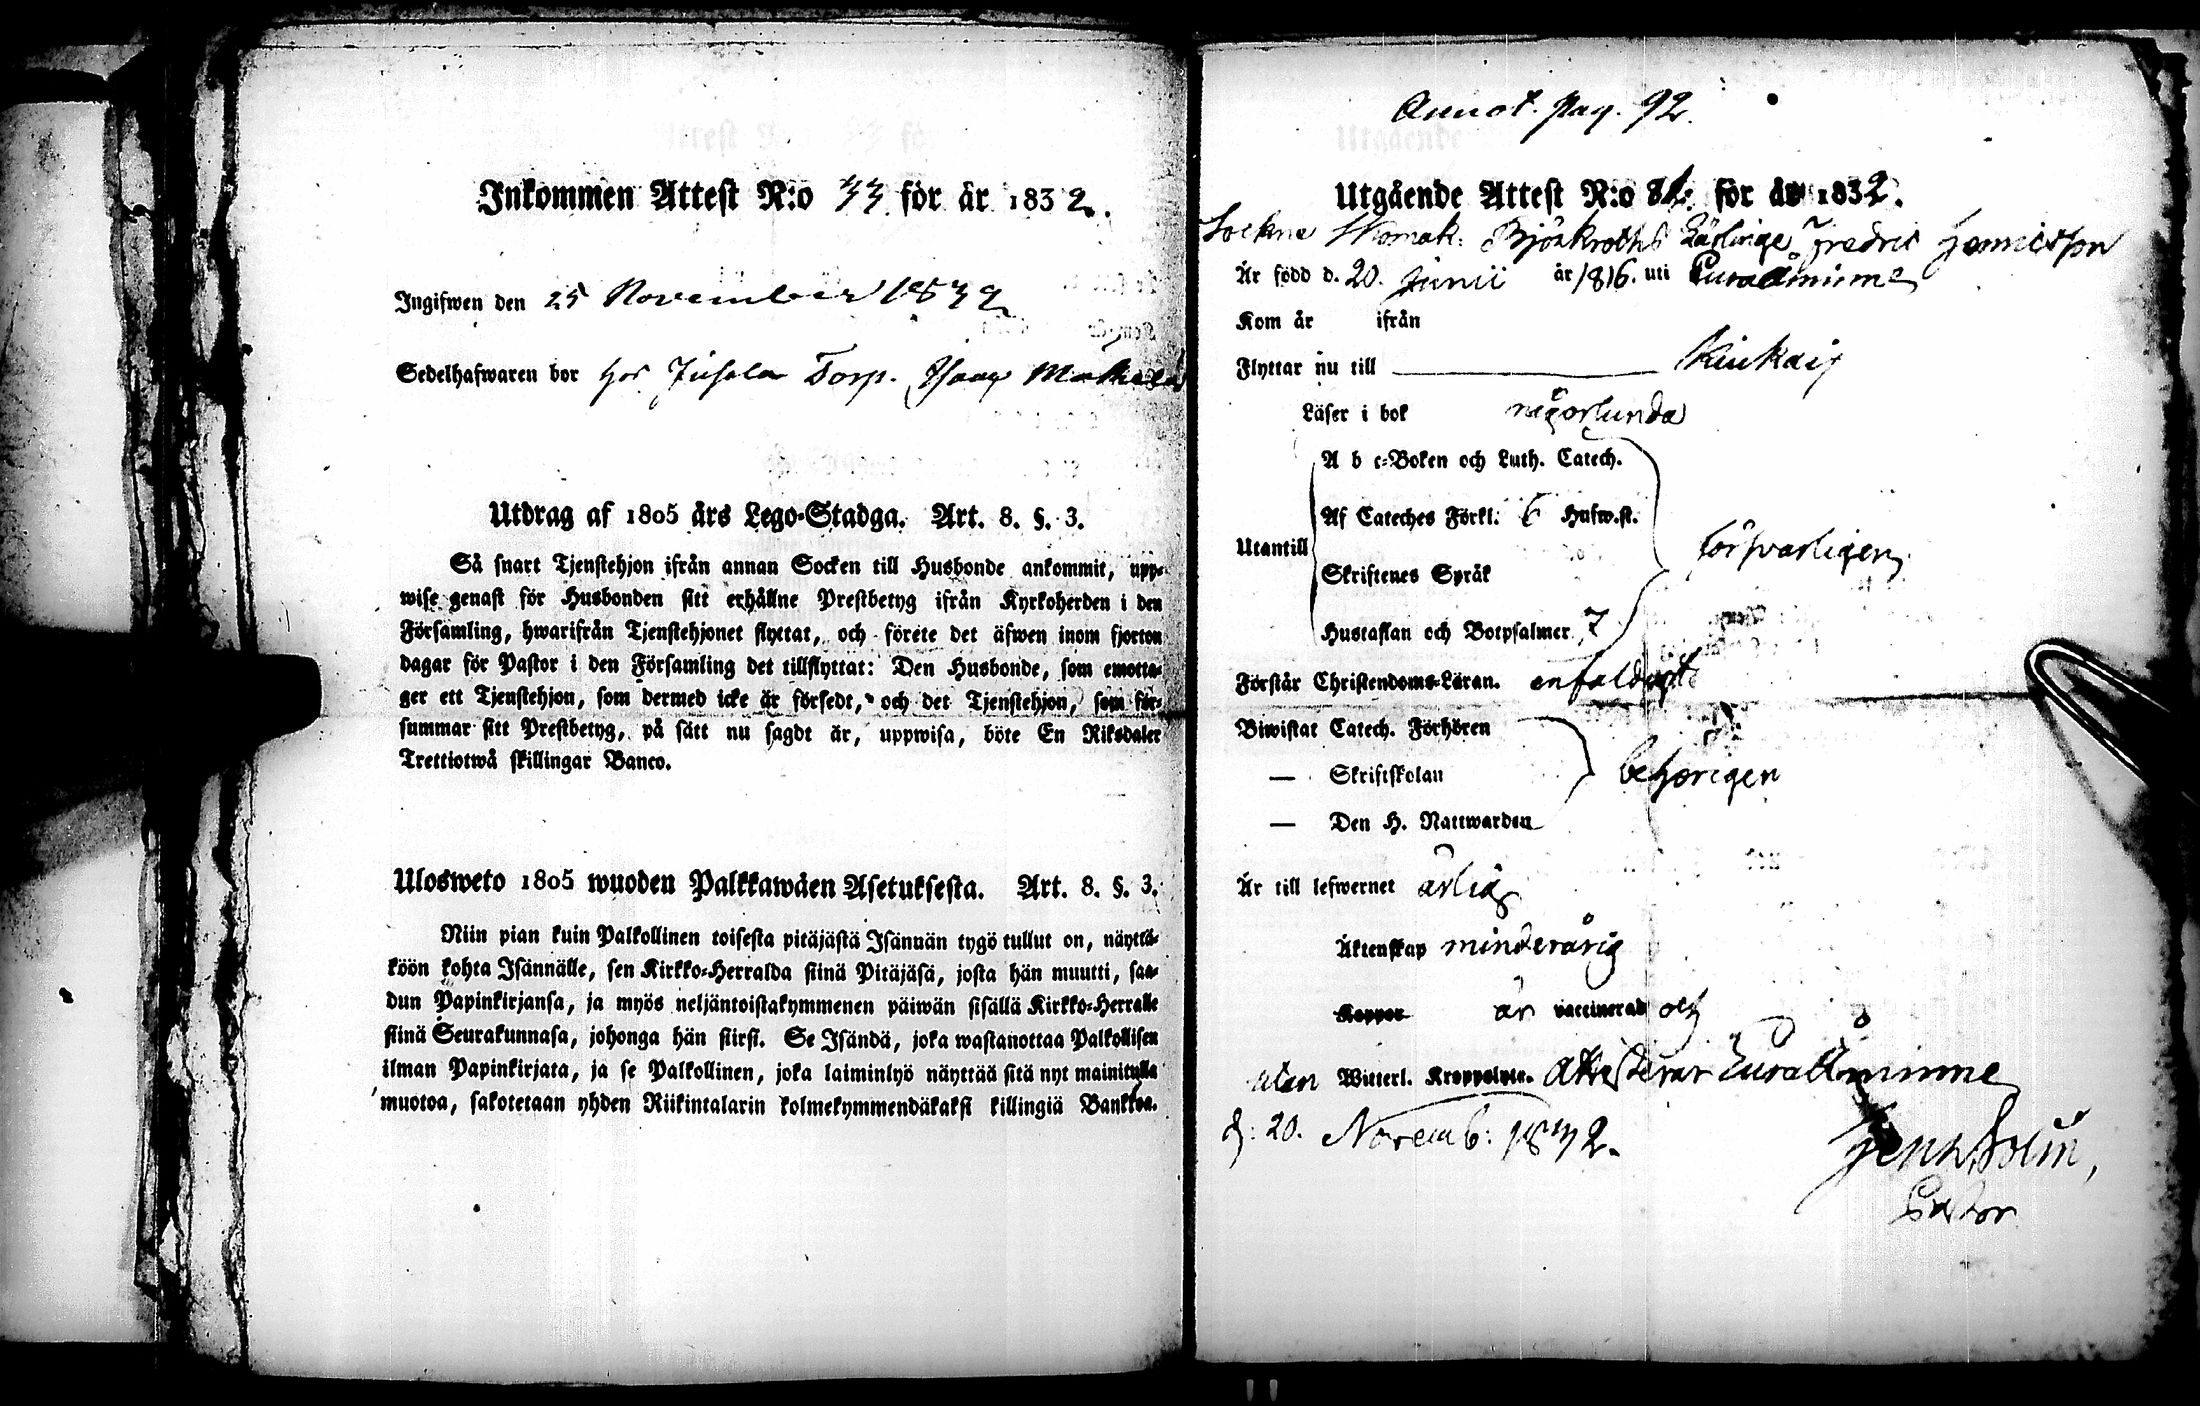 Inkommen Attest N:o 33 för år 1832.
Ingifwen den 25 November 1832
Sedelhafwaren bor hos Torp.
Utdrag af 1805 års Lego-Stadga. Art. 8. §. 3.
Så snart Tjenstehjon ifrån annan Socken till Husbonde ankommit, upp-
wise genast för Husbonden sitt erhållne Prestbetyg ifrån Kyrkoherden i den
Församling, hwarifrån Tjenstehjonet flyttat, och förete det äfwen inom fjorton
dagar för Pastor i den Församling det tillflyttat: Den Husbonde, som emotta-
ger ett Tjenstehjon, som dermed icke är försedt, och det Tjenstehjon, som för-
summar sitt Prestbetyg, på sätt nu sagdt är, uppwisa, böte En Riksdaler
Trettiotwå skillingar Banco.
Ulosweto 1805 wuoden Palkkawäen Asetuksesta. Art. 8. §. 3.
Niin pian kuin Palkollinen toisesta pitäjästä Isännän tygö tullut on, näyttä-
köön kohta Isännälle, sen Kirkko-Herralda siinä Pitäjäsä, josta hän muutti, saa-
dun Papinkirjansa, ja myös neljäntoistakymmenen päiwän sisällä Kirkko-Herralle
siinä Seurakunnasa, johonga hän siirsi. Se Isändä, joka wastanottaa Palkollisen
ilman Papinkirjata, ja se Palkollinen, joka laiminlyö näyttää sitä nyt mainitulla
muotoa, sakotetaan yhden Riikintalarin kolmekymmendäkaksi killingiä Bankkoa.
Annot. pag. 92.
Utgående Attest N:o för år 1832.
Sockne Skomak: Björkroths Lärlinge Fredric
Är född d. 20. Junii år 1816. uti Euraåminne
Kom år ifrån
Flyttar nu till Kiukais
Läser i bok någorlunda
A b c-Boken och Luth. Catech.
Af Cateches Förkl. 6 Hufw.st.
Utantill försvarligen
Skriftenes Språk
Hustaflan och Botpsalmer 7
Förstår Christendoms-Läran. enfaldigt
Biwistat Catech. Förhören
— Skriftskolan behörigen
— Den H. Nattwarden
Är till lefwernet ärlig
Äktenskap minderårig
Koppor är vaccinerad och
utan Witterl. Kroppslyte. Attesterar Euraåminne
d: 20. Novemb: 1832.
Pastor